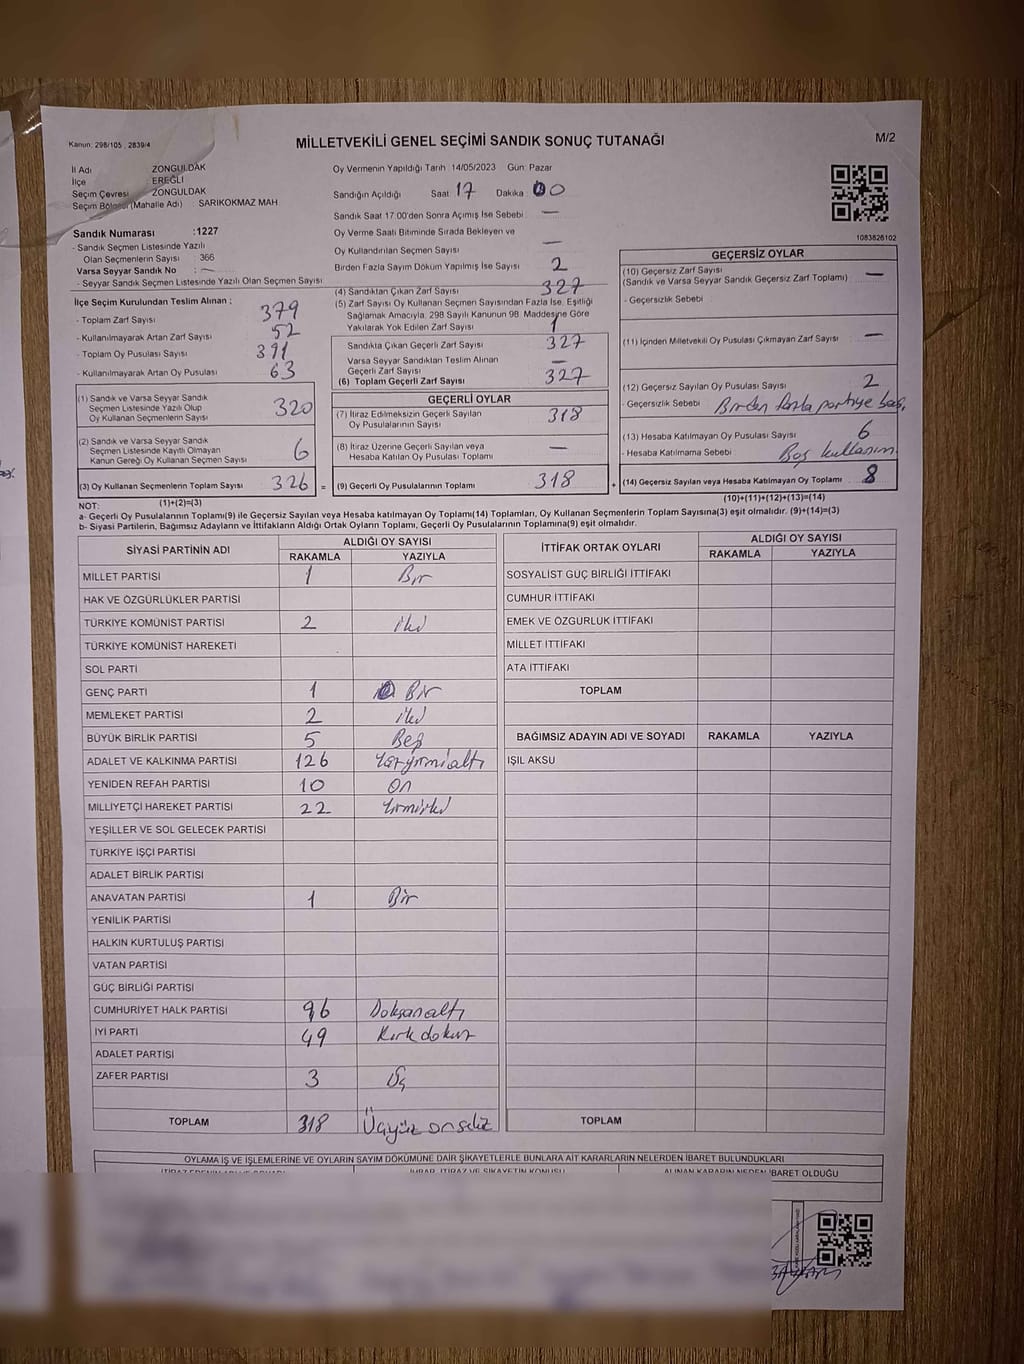 Kanun: 298/105 , 2839/4
MİLLETVEKİLİ GENEL SEÇİMİ SANDIK SONUÇ TUTANAĞI
M/2
İl Adı ZONGULDAK
İlçe EREĞLİ
Seçim Çevresi ZONGULDAK
Seçim Bölgesi (Mahalle Adı) SARIKOKMAZ MAH.
Sandık Numarası :1227
- Sandık Seçmen Listesinde Yazılı
Olan Seçmenlerin Sayısı 366
Varsa Seyyar Sandık No : —
- Seyyar Sandık Seçmen Listesinde Yazılı Olan Seçmen Sayısı:
İlçe Seçim Kurulundan Teslim Alınan ;
- Toplam Zarf Sayısı 379
- Kullanılmayarak Artan Zarf Sayısı 52
- Toplam Oy Pusulası Sayısı 391
- Kullanılmayarak Artan Oy Pusulası 63
(1) Sandık ve Varsa Seyyar Sandık
Seçmen Listesinde Yazılı Olup
Oy Kullanan Seçmenlerin Sayısı 320
(2) Sandık ve Varsa Seyyar Sandık
Seçmen Listesinde Kayıtlı Olmayan
Kanun Gereği Oy Kullanan Seçmen Sayısı 6
(3) Oy Kullanan Seçmenlerin Toplam Sayısı 326 =
(1)+(2)=(3)
Oy Vermenin Yapıldığı Tarih 14/05/2023 Gün: Pazar
Sandığın Açıldığı Saat 17 Dakika : 00
Sandık Saat 17:00'den Sonra Açımış İse Sebebi —
Oy Verme Saati Bitiminde Sırada Bekleyen ve
Oy Kullandırılan Seçmen Sayısı —
Birden Fazla Sayım Döküm Yapılmış İse Sayısı 2
(4) Sandıktan Çıkan Zarf Sayısı 327
(5) Zarf Sayısı Oy Kullanan Seçmen Sayısından Fazla İse, Eşitliği
Sağlamak Amacıyla, 298 Sayılı Kanunun 98. Maddesine Göre
Yakılarak Yok Edilen Zarf Sayısı 1
Sandıkta Çıkan Geçerli Zarf Sayısı 327
Varsa Seyyar Sandıktan Teslim Alınan
Geçerli Zarf Sayısı —
(6) Toplam Geçerli Zarf Sayısı 327
GEÇERLİ OYLAR
(7) İtiraz Edilmeksizin Geçerli Sayılan
Oy Pusulalarının Sayısı 318
(8) İtiraz Üzerine Geçerli Sayılan veya
Hesaba Katılan Oy Pusulası Toplamı —
(9) Geçerli Oy Pusulalarının Toplamı 318 +
1083826102
GEÇERSİZ OYLAR
(10) Geçersiz Zarf Sayısı —
(Sandık ve Varsa Seyyar Sandık Geçersiz Zarf Toplamı)
- Geçersizlik Sebebi
(11) İçinden Milletvekili Oy Pusulası Çıkmayan Zarf Sayısı —
(12) Geçersiz Sayılan Oy Pusulası Sayısı 2
- Geçersizlik Sebebi Birden fazla partiye bas.
(13) Hesaba Katılmayan Oy Pusulası Sayısı 6
- Hesaba Katılmama Sebebi Boş kullanım
(14) Geçersiz Sayılan veya Hesaba Katılmayan Oy Toplamı 8
(10)+(11)+(12)+(13)=(14)
NOT:
a- Geçerli Oy Pusulalarının Toplamı(9) ile Geçersiz Sayılan veya Hesaba Katılmayan Oy Toplamı(14) Toplamları, Oy Kullanan Seçmenlerin Toplam Sayısına(3) eşit olmalıdır. (9)+(14)=(3)
b- Siyasi Partilerin, Bağımsız Adayların ve İttifakların Aldığı Ortak Oyların Toplamı, Geçerli Oy Pusulalarının Toplamına(9) eşit olmalıdır.
SİYASİ PARTİNİN ADI ALDIĞI OY SAYISI
RAKAMLA YAZIYLA
MİLLET PARTİSİ 1 Bir
HAK VE ÖZGÜRLÜKLER PARTİSİ
TÜRKİYE KOMÜNİST PARTİSİ 2 iki
TÜRKİYE KOMÜNİST HAREKETİ
SOL PARTİ
GENÇ PARTİ 1 Bir
MEMLEKET PARTİSİ 2 iki
BÜYÜK BİRLİK PARTİSİ 5 Beş
ADALET VE KALKINMA PARTİSİ 126 Yüzyirmialtı
YENİDEN REFAH PARTİSİ 10 On
MİLLİYETÇİ HAREKET PARTİSİ 22 Yirmiiki
YEŞİLLER VE SOL GELECEK PARTİSİ
TÜRKİYE İŞÇİ PARTİSİ
ADALET BİRLİK PARTİSİ
ANAVATAN PARTİSİ 1 Bir
YENİLİK PARTİSİ
HALKIN KURTULUŞ PARTİSİ
VATAN PARTİSİ
GÜÇ BİRLİĞİ PARTİSİ
CUMHURİYET HALK PARTİSİ 96 Doksanaltı
İYİ PARTİ 49 Kırkdokuz
ADALET PARTİSİ
ZAFER PARTİSİ 3 Üç
TOPLAM 318 Üçyüzonsekiz
İTTİFAK ORTAK OYLARI ALDIĞI OY SAYISI
RAKAMLA YAZIYLA
SOSYALİST GÜÇ BİRLİĞİ İTTİFAKI
CUMHUR İTTİFAKI
EMEK VE ÖZGÜRLÜK İTTİFAKI
MİLLET İTTİFAKI
ATA İTTİFAKI
TOPLAM
BAĞIMSIZ ADAYIN ADI VE SOYADI RAKAMLA YAZIYLA
IŞIL AKSU
TOPLAM
OYLAMA İŞ VE İŞLEMLERİNE VE OYLARIN SAYIM DÖKÜMÜNE DAİR ŞİKAYETLERLE BUNLARA AİT KARARLARIN NELERDEN İBARET BULUNDUKLARI
ALINAN KARARIN NEDEN İBARET OLDUĞU